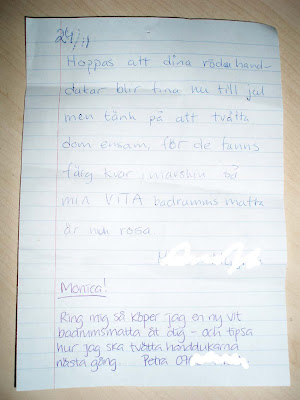 24/11
Hoppas att dina röda hand-
dukar blir fina nu till jul
men tänk på att tvätta
dom ensam, för de fanns
färg kvar i maskin så
min VITA badrumms matta
är nu rosa
Monica!
Ring mig så köper jag en ny vit
badrumsmatta åt dig - och tipsa
hur jag ska tvätta handdukarna
nästa gång. Petra 07